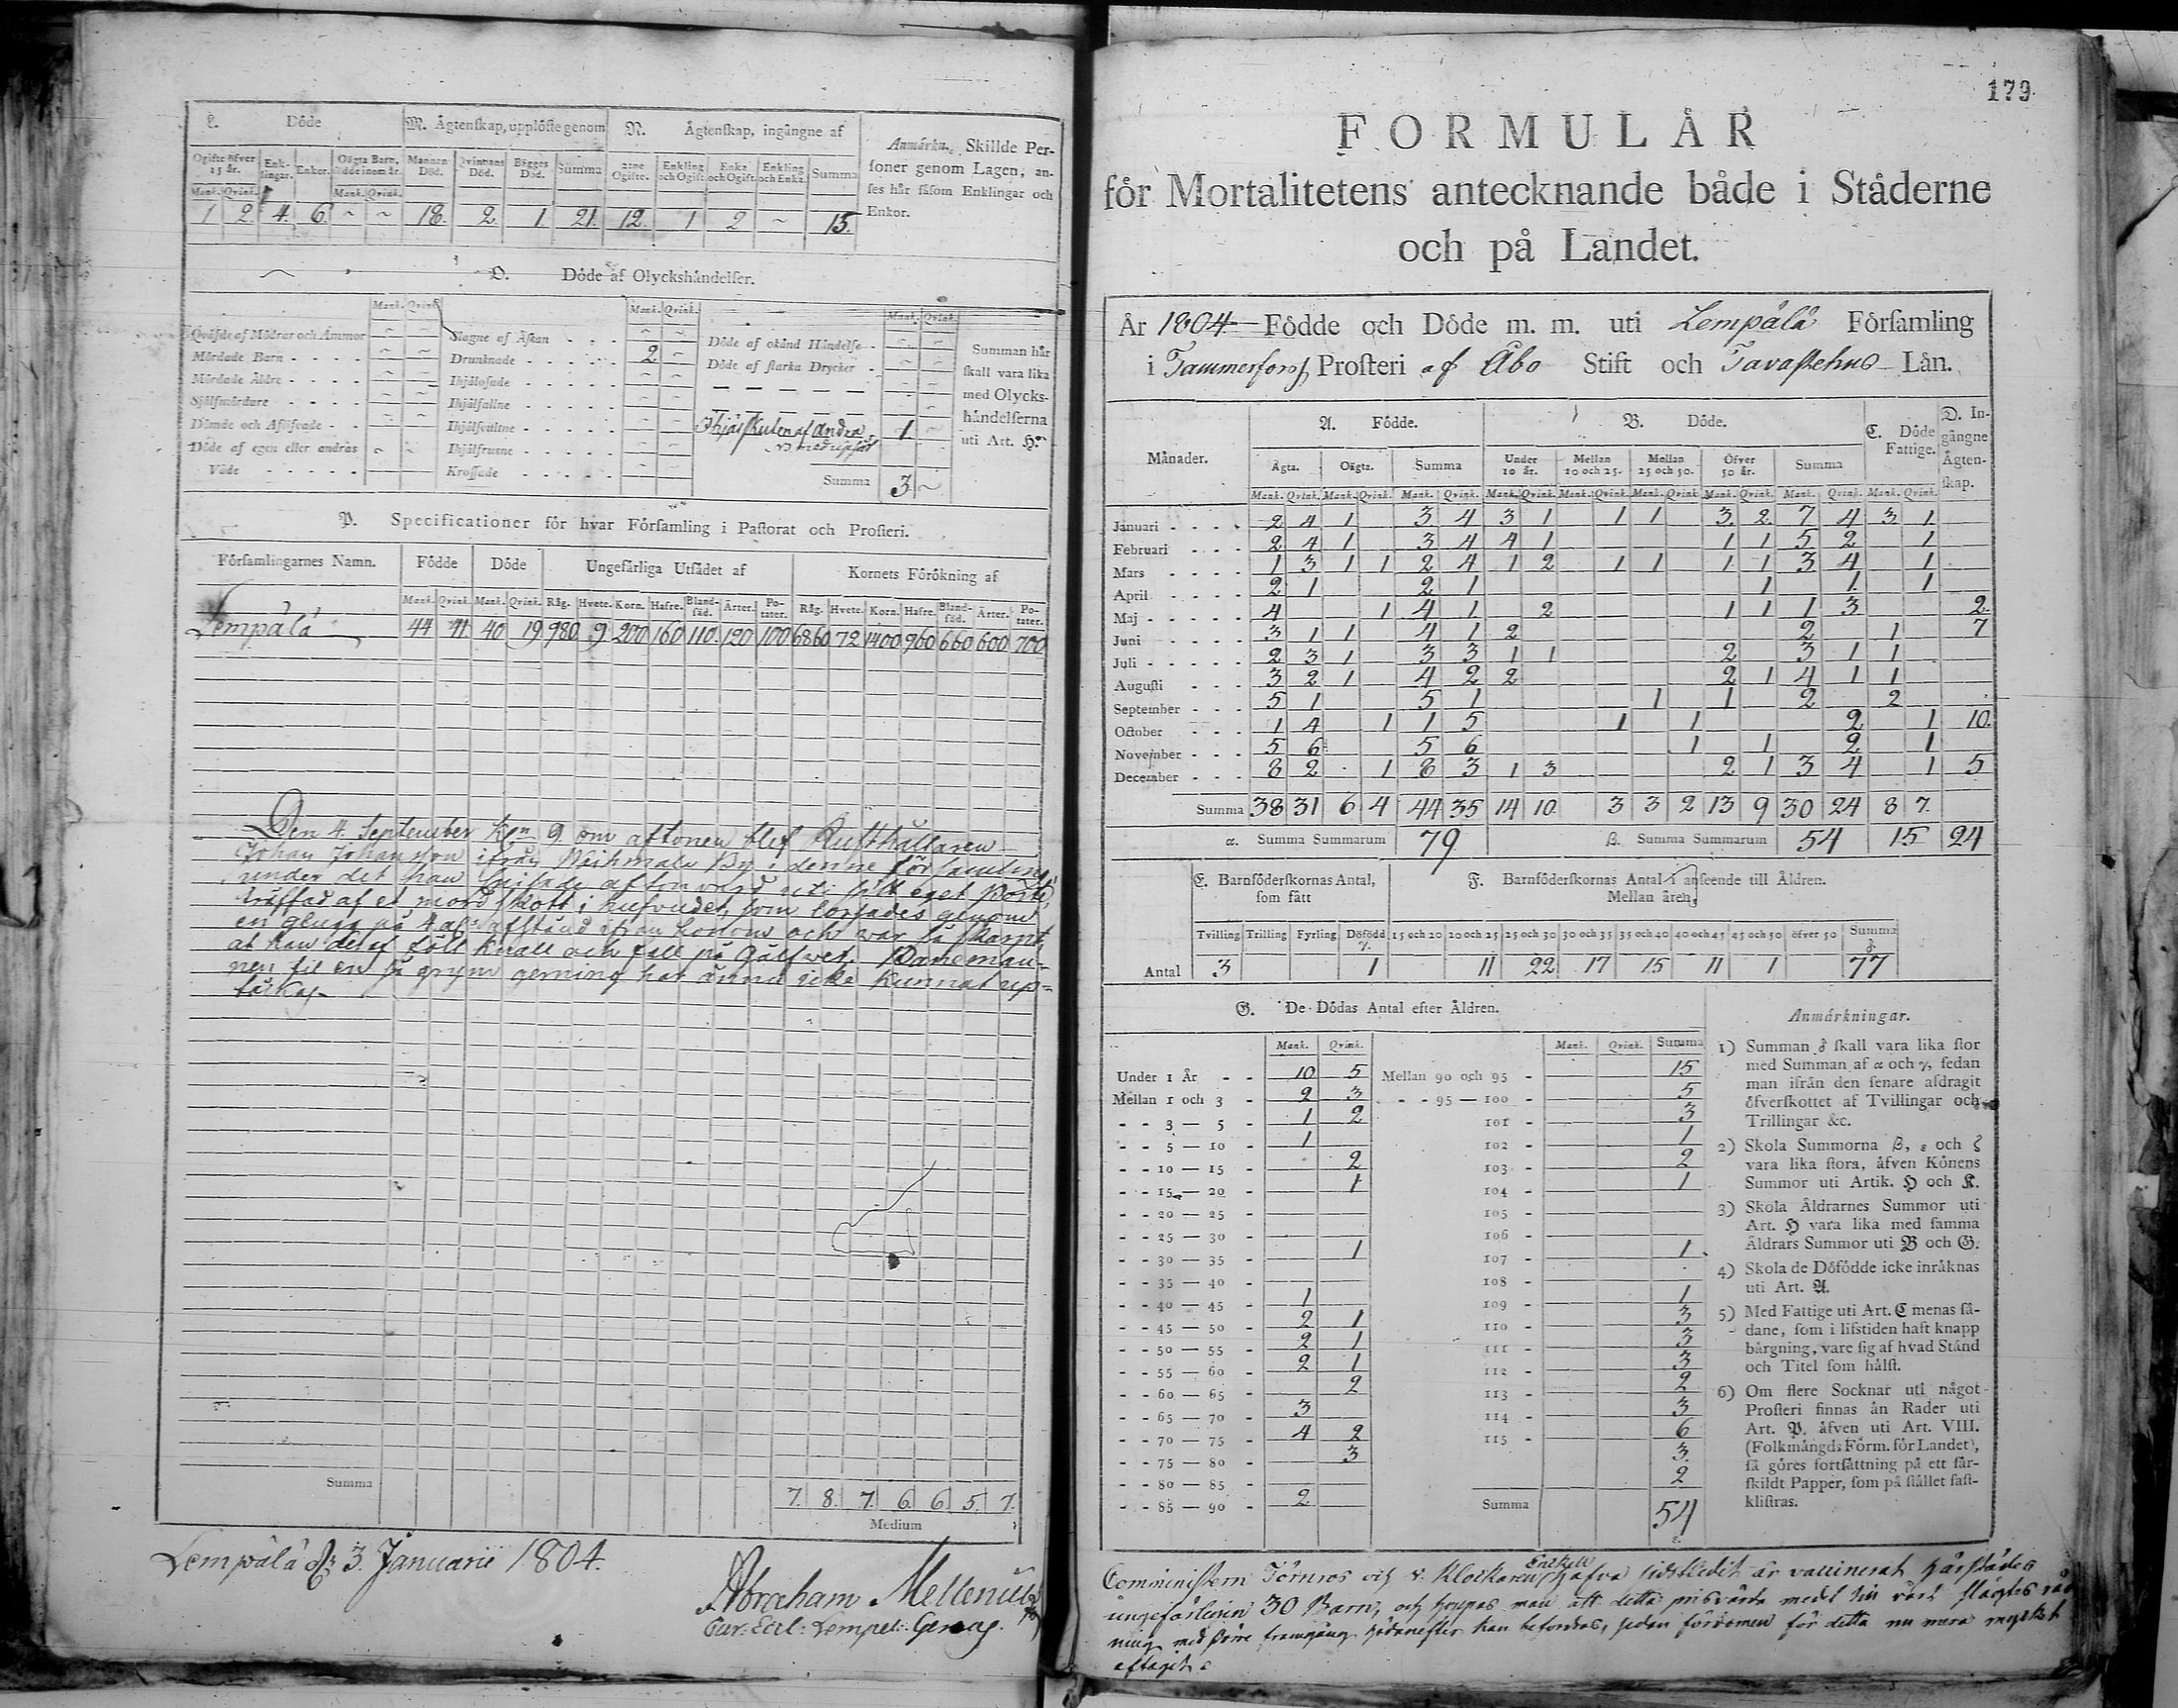 L. Döde
M. Ägtenskap, upplöste genom
N. Ägtenskap, ingångne af
Anmärkn. Skillde Personer genom Lagen, anses här såsom Enklingar och Enkor.
Ogifte öfver 15 år. Enklingar. Enkor. Oägta Barn, födde inom år. Mannens Död. Qvinnans Död. Bägges Död. Summa 2:ne Ogifte. Enkling och Ogift. Enka och Ogift. Enkling och Enka. Summa
Mank. Qvink. Mank. Qvink.
1 2 4. 6. ~ ~ 18. 2 1. 21. 12. 1 2 ~ 15.
O. Döde af Olyckshändelser.
Mank. Qvink. Mank. Qvink. Mank. Qvink.
Qväfde af Mödrar och Ammor ~ ~
Mördade Barn ~ ~
Mördade Äldre ~ ~
Självmördare ~ ~
Dömde och Aflifvade ~ ~
Döde af egen eller andras Våde ~ ~
Slagne af Åskan ~ ~
Drunknade 2 ~
Ihjälosade ~ ~
Ihjälfallne ~ ~
Ihjälsvultne ~ ~
Ihjälfrusne ~ ~
Krossade ~ ~
Döde af okänd Händelse ~ ~
Döde af starka Drycker ~ ~
Ihjälskuten af andra 1 ~
Summa 3 ~
Summan här skall vara lika med Olyckshändelserna uti Art. H.
P. Specificationer för hvar Församling i Pastorat och Prosteri.
Församlingarnes Namn. Födde Döde Ungefärliga Utsädet af Kornets Förökning af
Mank. Qvink. Mank. Qvink. Råg. Hvete. Korn. Hafre. Blandsäd. Ärter. Potater. Råg. Hvete. Korn. Hafre. Blandsäd. Ärter. Potater.
Lempälä 44 41 40 19 980 9 200 160 110 120 100 6860 72 1400 960 660 600 700
Den 4. September Kl. 9 om aftonen blef Rusthållaren
Johan Johansson ifrån Waihmala By i denne församling,
under det han spisade aftonvard uti sitt eget Pörte,
träffad af et mord skott i hufvudet, som lossades genom
en glugg på 4 al:s afstånd ifrån honom och war så skarpt,
at han deraf föll knall och fall på Gålfwet. Baneman-
nen til en så grym gerning har ännu icke kunnat up-
täckas.
Summa 7. 8. 7. 6. 6. 5. 7.
Medium
Lempälä d. 3. Januarii 1804.
Abraham Mellenius
179.
FORMULÄR
för Mortalitetens antecknande både i Städerne
och på Landet.
År 1804 Födde och Döde m. m. uti Lempälä Församling
i Tammerfors Prosteri af Åbo Stift och Tavastehus Län.
Månader. A. Födde. B. Döde. C. Döde Fattige. D. Ingångne Ägtenskap.
Ägta. Oägta. Summa Under 10 år. Mellan 10 och 25. Mellan 25 och 50. Öfver 50 år. Summa
Mank. Qvink. Mank. Qvink. Mank. Qvink. Mank. Qvink. Mank. Qvink. Mank. Qvink. Mank. Qvink. Mank. Qvink. Mank. Qvink.
Januari 2 4 1 3 4 3 1 1 1 3 2 7 4 3 1
Februari 2 4 1 3 4 4 1 1 1 5 2 1
Mars 1 3 1 1 2 4 1 2 1 1 1 1 3 4 1
April 2 1 2 1 1 1 1
Maj 4 1 4 1 2 1 1 1 3 2
Juni 3 1 1 4 1 2 2 1 7
Juli 2 3 1 3 3 1 1 2 3 1 1
Augusti 3 2 1 4 2 2 2 1 4 1 1
September 5 1 5 1 1 1 2 2
October 1 4 1 1 5 1 1 2 1 10.
November 5 6 5 6 1 1 2 1
December 8 2 1 8 3 1 3 2 1 3 4 1 5
Summa 38 31 6 4 44 35 14 10 3 3 2 13 9 30 24 8 7.
α. Summa Summarum 79 β. Summa Summarum 54 15 24
E. Barnföderskornas Antal, som fått
F. Barnföderskornas Antal i anseende till Åldren.
Mellan åren,
Tvilling Trilling Fyrling Dödfödd γ. 15 och 20 20 och 25 25 och 30 30 och 35 35 och 40 40 och 45 45 och 50 öfver 50 Summa δ.
Antal 3 1 11 22 17 15 11 1 77
G. De Dödas Antal efter Åldren.
Mank. Qvink. Mank. Qvink. Summa
Under 1 År 10 5 Mellan 90 och 95 15
Mellan 1 och 3 2 3 95 — 100 5
3 — 5 1 2 101 3
5 — 10 1 102 1
10 — 15 2 103 2
15 — 20 1 104 1
20 — 25 105
25 — 30 106
30 — 35 1 107 1
35 — 40 108
40 — 45 1 109 1
45 — 50 2 1 110 3
50 — 55 2 1 111 3
55 — 60 2 1 112 3
60 — 65 2 113 2
65 — 70 3 114 3
70 — 75 4 2 115 6
75 — 80 3 3
80 — 85 2
85 — 90 2 Summa 54
Anmärkningar.
1) Summan δ skall vara lika stor
med Summan af α och γ, sedan
man ifrån den senare afdragit
öfverskottet af Tvillingar och
Trillingar &c.
2) Skola Summorna β, ε och ζ
vara lika stora, äfven Könens
Summor uti Artik. H och K.
3) Skola Åldrarnes Summor uti
Art. H vara lika med samma
Åldrars Summor uti B och G.
4) Skola de Döfödde icke inräknas
uti Art. A.
5) Med Fattige uti Art. C menas så-
dane, som i lifstiden haft knapp
bärgning, vare sig af hvad Stånd
och Titel som hälst.
6) Om flere Socknar uti något
Prosteri finnas än Rader uti
Art. P. äfven uti Art. VIII.
(Folkmängds Form. för Landet),
så göres fortsättning på ett sär-
skildt Papper, som på stället fast-
klistras.
Comministern Törnros och v. Klockaren Enekell hafva sidstledit år vaccinerat härstädes
ungefärligen 30 Barn, och hoppas man att detta prisvärda medel till vårt slägtes räd
ning med större framgång hädanefter kan befordras, sedan fördomen för detta nu mera mycket
aftagit.